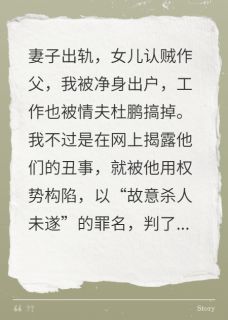 妻子出轨，女儿认贼作
父，我被净身出户，工
作也被情夫杜鹏搞掉。
我不过是在网上揭露他
们的丑事，就被他用权
势构陷，以“故意杀人
未遂”的罪名，判了...
Story